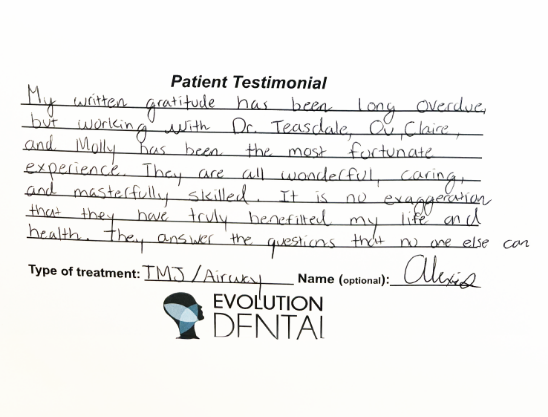 Patient Testimonial
My written gratitude has been long overdue,
but working with Dr. Teasdale, Ov, Claire,
and Molly has been the most fortunate
experience. They are all wonderful, caring,
and masterfully skilled. It is no exaggeration
that they have truly benefitted my life and
health. They answer the questions that no one else can
Type of treatment: TMJ/Airway Name (optional): Alexis
EVOLUTION
DENTAL